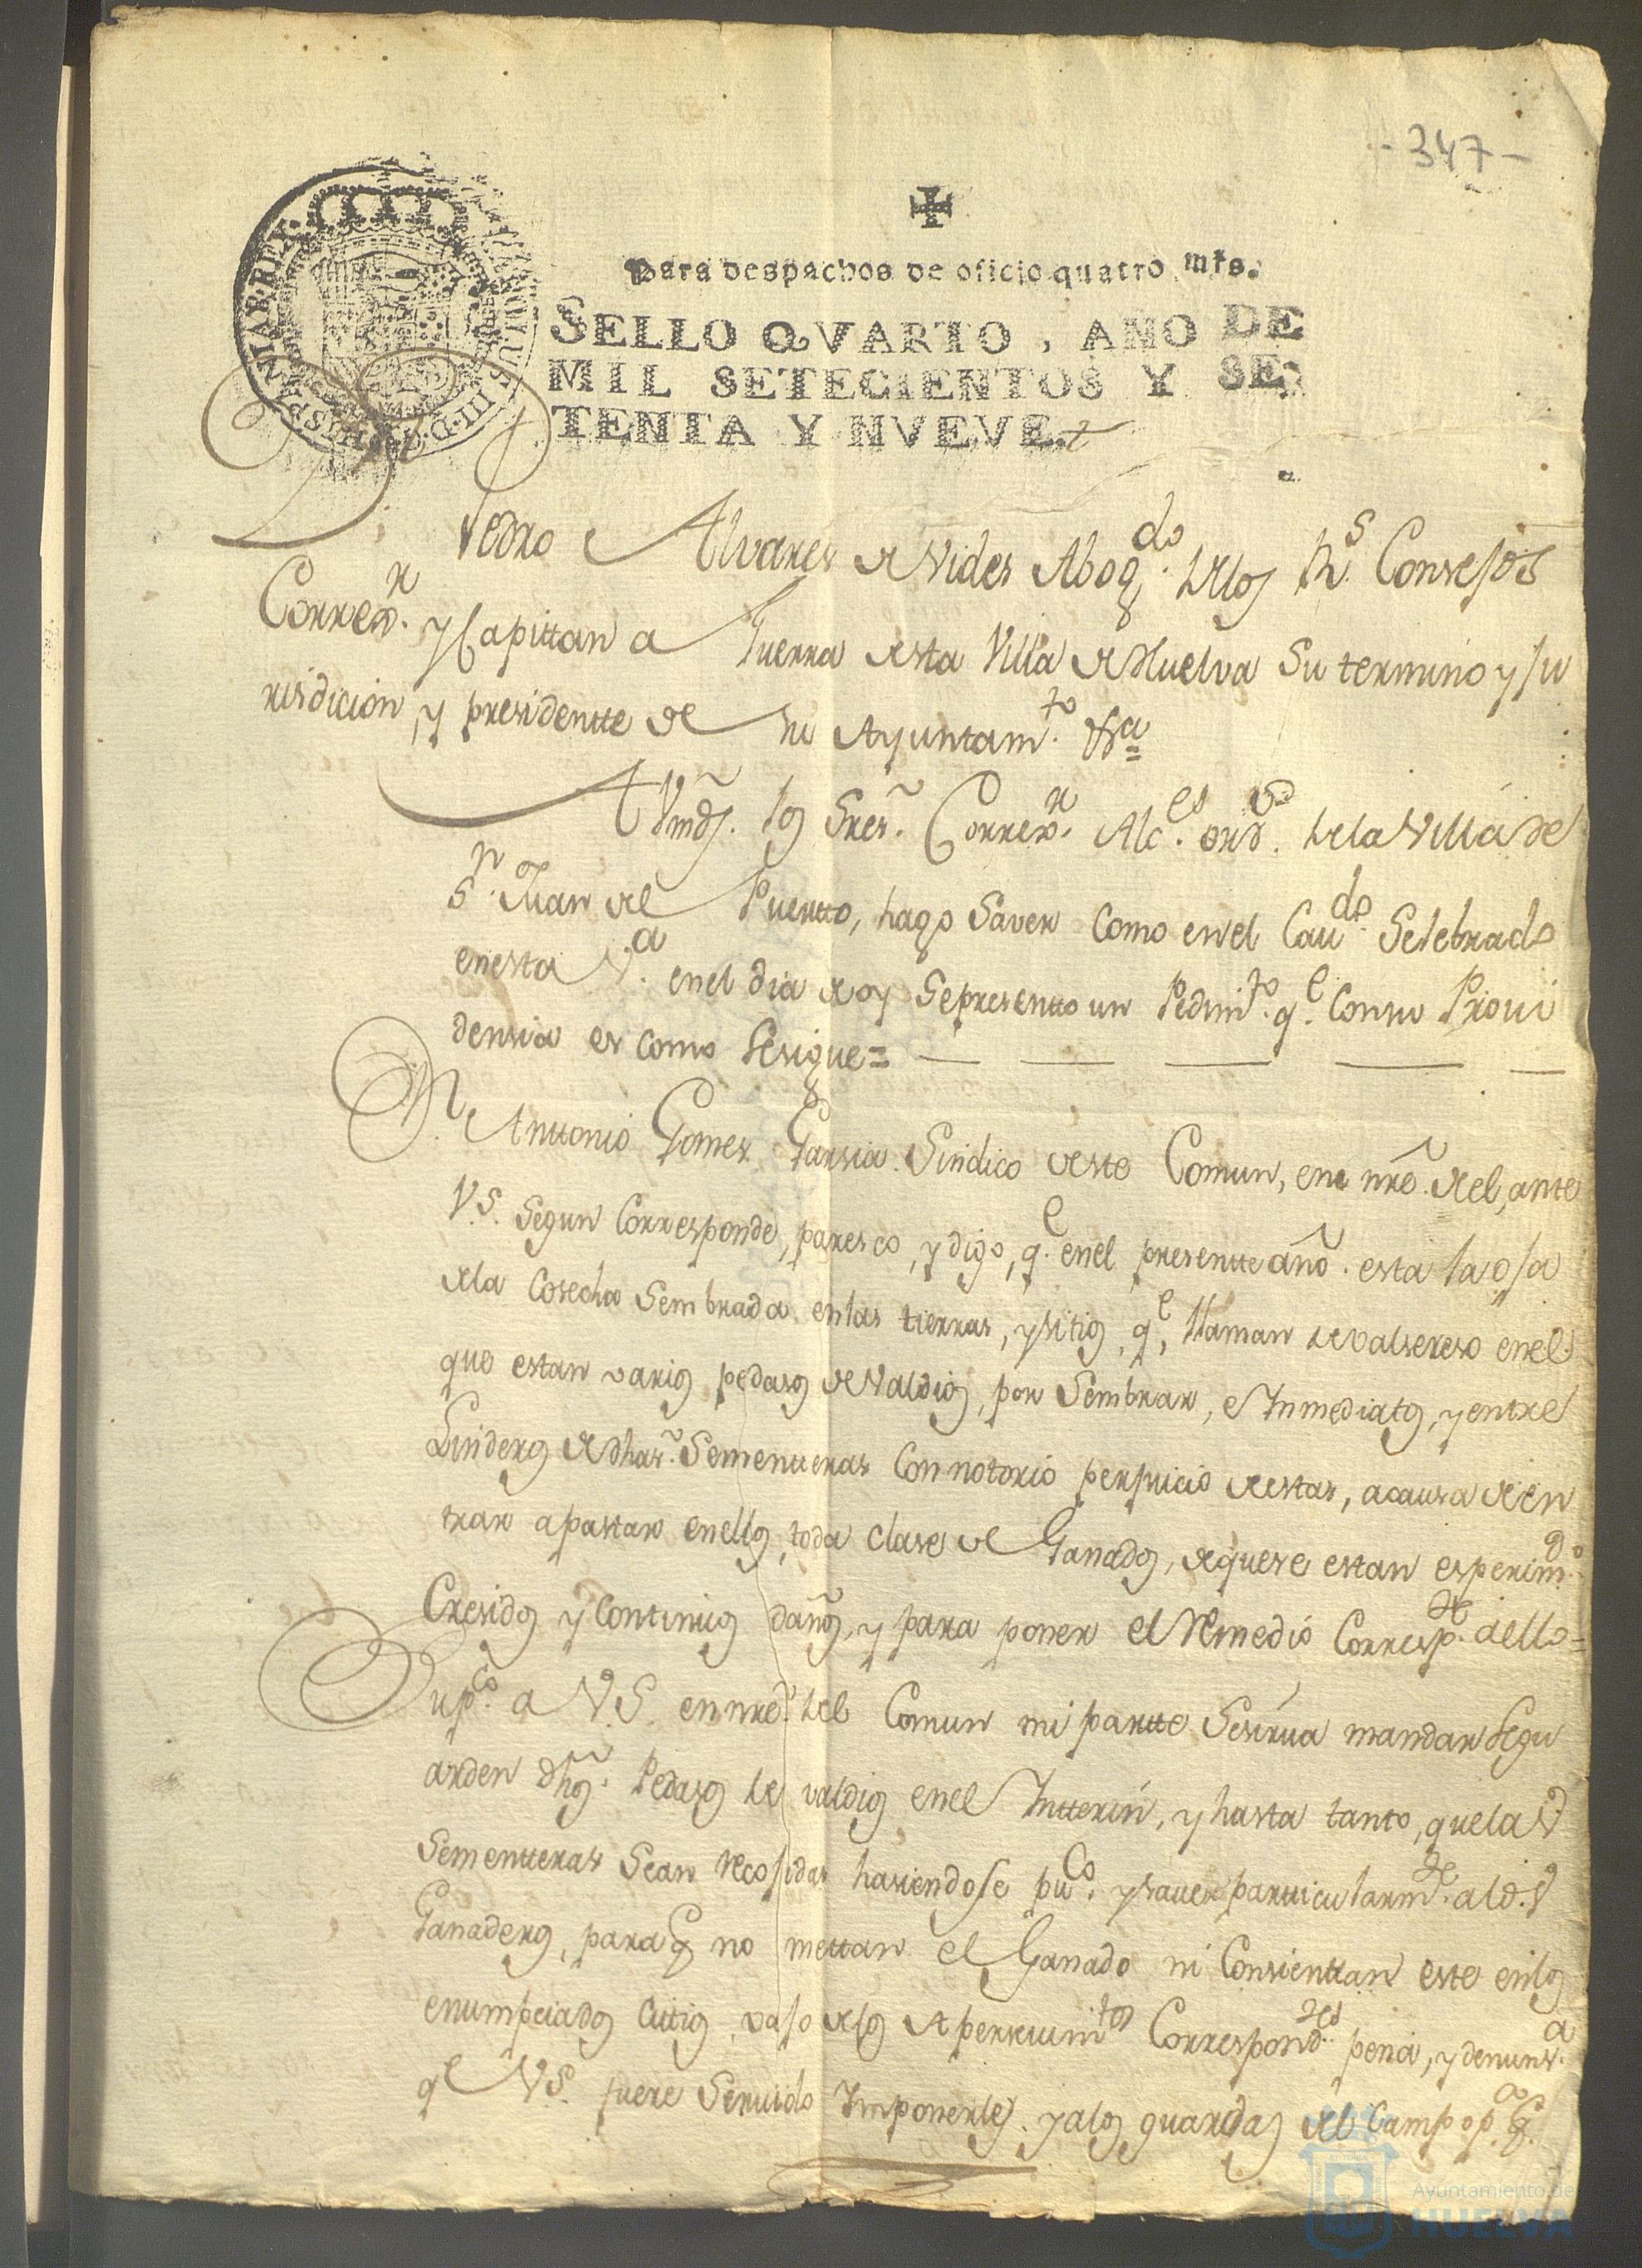 - 347 -
Para despachos de oficio quatro mrs.
SELLO QVARTO, AÑO DE
MIL SETECIENTOS Y SE-
TENTA Y NVEVE.
CAROLUS III D.G. HISPANIAR REX
Dn Pedro Alvares de Vides Abogdo. de los Rs. Consejos
Correxr. y Capittan a Guerra desta Villa de Huelva su termino y ju
risdicion, y presidentte de su Ayuntamto. &a =
A Vmds. los Sres. Correxr. Alces. ords. de la Villa de
Sn. Juan del Puertto, hago saver como en el Caudo. Selebrado
en esta Va. en el dia de oy se presentto un Pedimto. qe. con su Proui
densia es como se sigue =
Dn. Anttonio Gomez Garsia Sindico deste Comun, en nre. del, ante
V.S. segun corresponde, paresco, y digo, qe. en el presentte año. esta la oja
de la cosecha sembrada en las tierras, y sitios, qe. llaman de valsereso en el
que estan varios pedasos de valdios, por sembrar, e Inmediatos, y entre
Linderos de dhas. sementteras con notorio perjuicio de estas, a causa de en
trar a pastar en ellos, toda clase de Ganados, de que se estan esperimdo.
cresidos y continuos daños, y para poner el Remedio correspte. a ello =
Supco. a V.S. en nre. del Comun mi partte se sirva mandar se gu
arden dhos. Pedasos de valdios en el Intterin, y hasta tanto, que las
sementteras sean recojidas hasiendose puco. y sauer particularmte. a los
Ganaderos, para q no mettan el Ganado ni consienttan este en los
enumpciados citios, vajo de los Apersevimtos Correspondtes pena, y denunsa.
qe V.S. fuere servido Imponerles. y a los guardas del Campo pa. q.
Ayuntamiento de
HUELVA